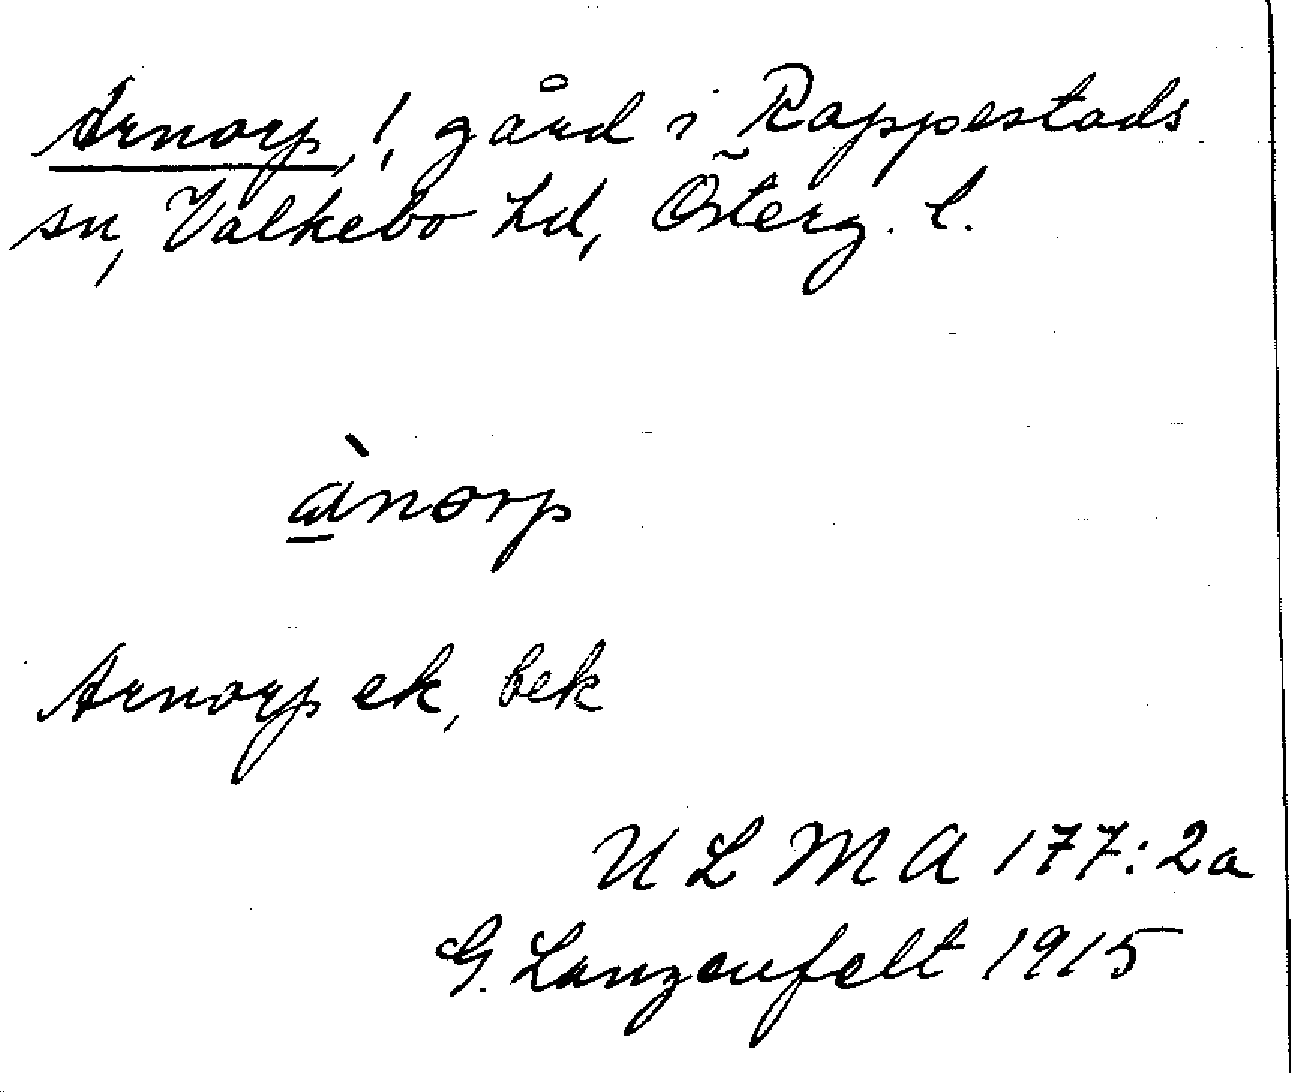 Arnorp, !, gård i Rappestads
sn, Valkebo hd, Österg. l.
ànorp
Arnorp ek, bek
U L M A 177:2a
G. Lanzenfelt 1915